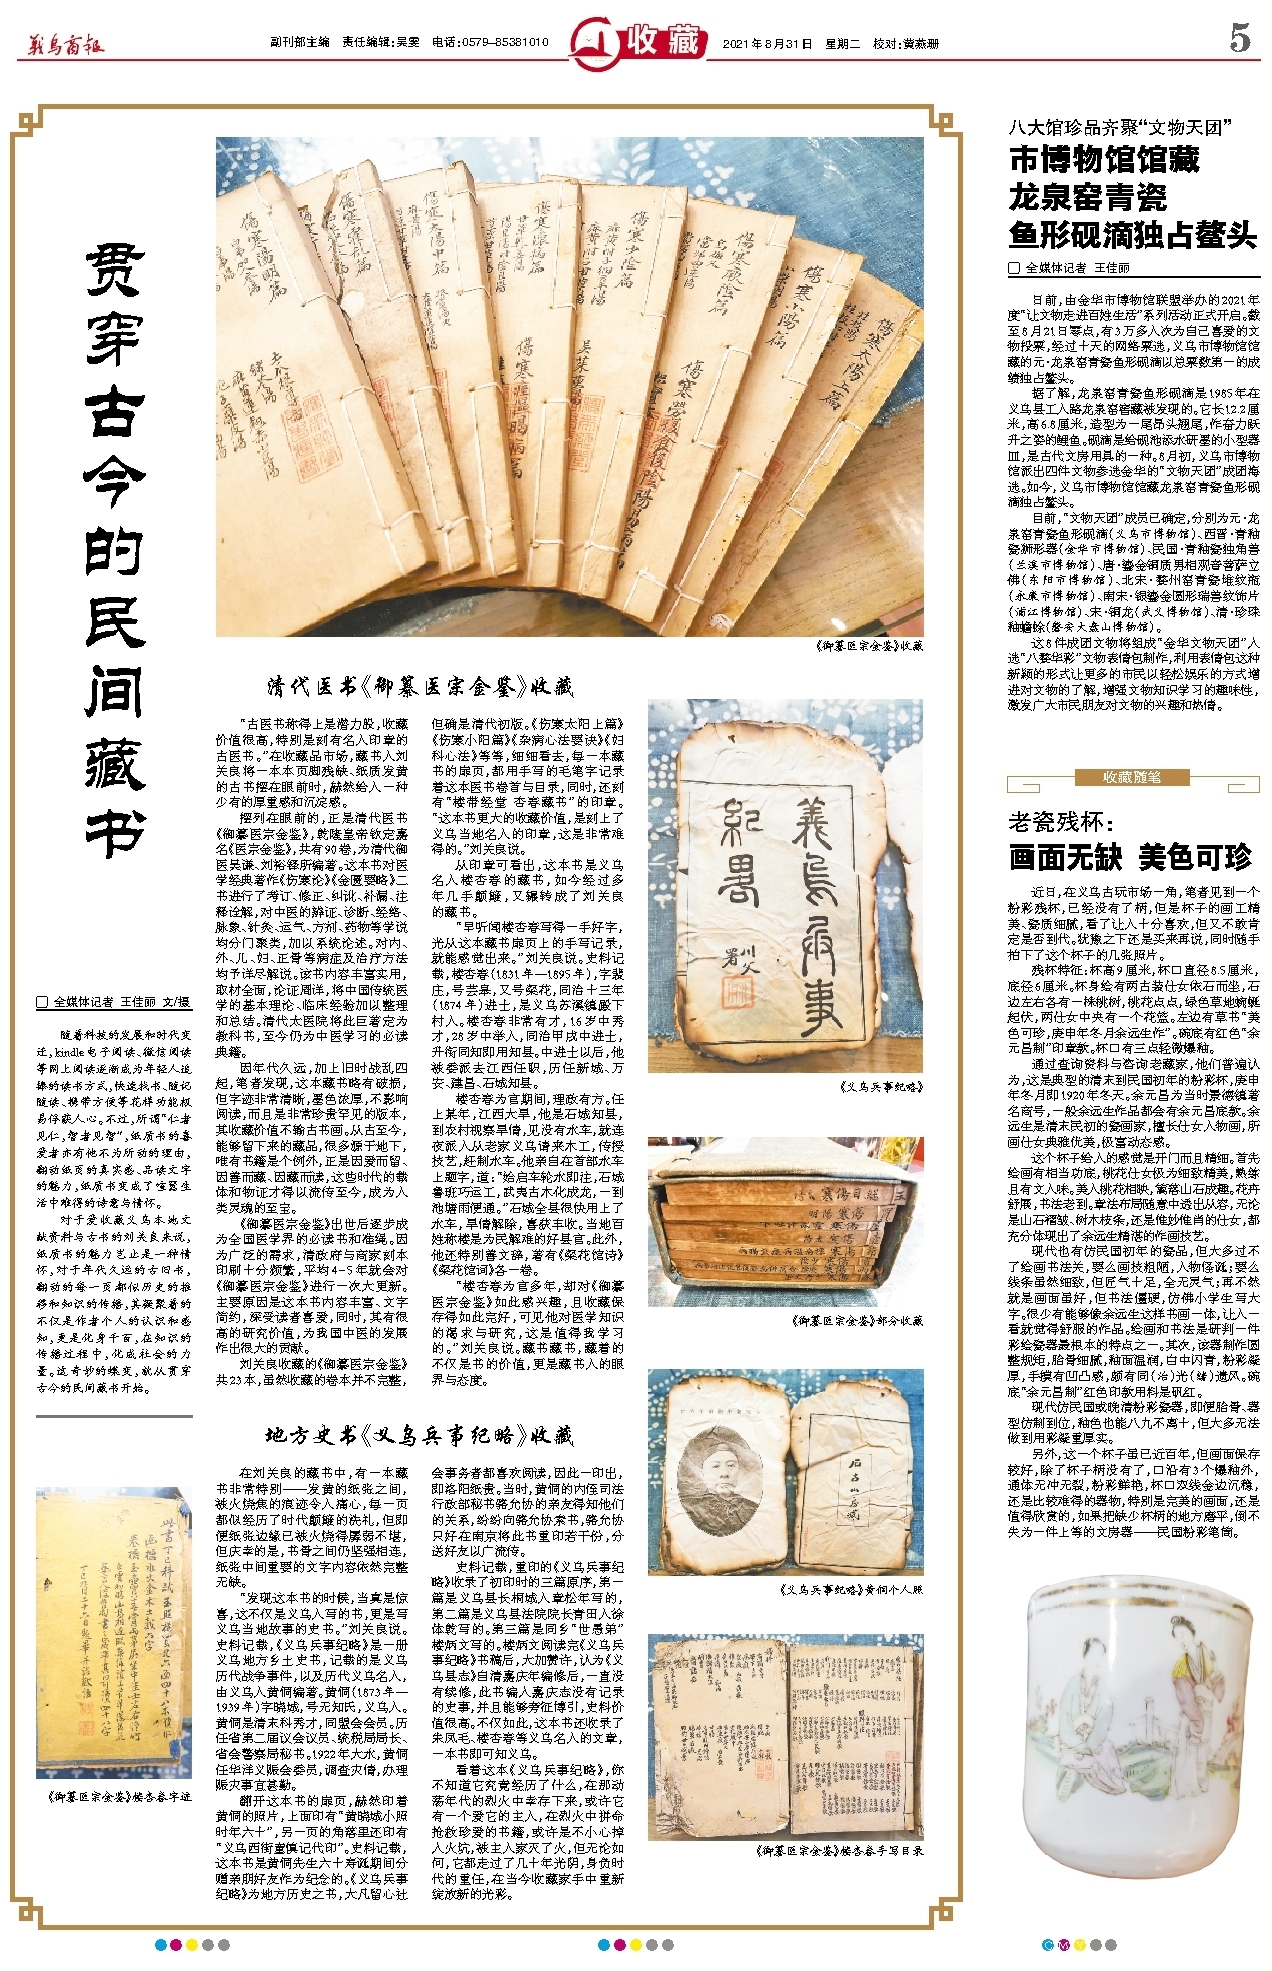 义乌商报
副刊部主编 责任编辑:吴雯 电话:0579-85381010
收藏
2021年8月31日 星期二 校对:黄燕珊
5
贯穿古今的民间藏书
全媒体记者 王佳丽 文/摄
随着科技的发展和时代变
迁,kindle电子阅读、微信阅读
等网上阅读逐渐成为年轻人追
捧的读书方式,快速找书、随记
随读、携带方便等花样功能极
易俘获人心。不过,所谓“仁者
见仁,智者见智”,纸质书的喜
爱者亦有他不为所动的理由,
翻动纸页的真实感、品读文字
的魅力,纸质书变成了喧嚣生
活中难得的诗意与情怀。
对于爱收藏义乌本地文
献资料与古书的刘关良来说,
纸质书的魅力岂止是一种情
怀,对于年代久远的古旧书,
翻动的每一页都似历史的推
移和知识的传播,其凝聚着的
不仅是作者个人的认识和感
知,更是化身千百,在知识的
传播过程中,化成社会的力
量。这奇妙的蝶变,就从贯穿
古今的民间藏书开始。
《御纂医宗金鉴》楼杏春字迹
《御纂医宗金鉴》收藏
清代医书《御纂医宗金鉴》收藏
“古医书称得上是潜力股,收藏
价值很高,特别是刻有名人印章的
古医书。”在收藏品市场,藏书人刘
关良将一本本页脚残缺、纸质发黄
的古书摆在眼前时,赫然给人一种
少有的厚重感和沉淀感。
摆列在眼前的,正是清代医书
《御纂医宗金鉴》,乾隆皇帝钦定嘉
名《医宗金鉴》,共有90卷,为清代御
医吴谦、刘裕铎所编著。这本书对医
学经典著作《伤寒论》《金匮要略》二
书进行了考订、修正、纠讹、补漏、注
释诠解,对中医的辨证、诊断、经络、
脉象、针灸、运气、方剂、药物等学说
均分门聚类,加以系统论述。对内、
外、儿、妇、正骨等病症及治疗方法
均予详尽解说。该书内容丰富实用,
取材全面,论证周详,将中国传统医
学的基本理论、临床经验加以整理
和总结。清代太医院将此巨著定为
教科书,至今仍为中医学习的必读
典籍。
因年代久远,加上旧时战乱四
起,笔者发现,这本藏书略有破损,
但字迹非常清晰,墨色浓厚,不影响
阅读,而且是非常珍贵罕见的版本,
其收藏价值不输古书画。从古至今,
能够留下来的藏品,很多源于地下,
唯有书籍是个例外,正是因爱而留、
因善而藏、因藏而读,这些时代的载
体和物证才得以流传至今,成为人
类灵魂的至宝。
《御纂医宗金鉴》出世后逐步成
为全国医学界的必读书和准绳。因
为广泛的需求,清政府与商家刻本
印刷十分频繁,平均4-5年就会对
《御纂医宗金鉴》进行一次大更新。
主要原因是这本书内容丰富、文字
简约,深受读者喜爱,同时,其有很
高的研究价值,为我国中医的发展
作出很大的贡献。
刘关良收藏的《御纂医宗金鉴》
共23本,虽然收藏的卷本并不完整,
但确是清代初版。《伤寒太阳上篇》
《伤寒小阳篇》《杂病心法要诀》《妇
科心法》等等,细细看去,每一本藏
书的扉页,都用手写的毛笔字记录
着这本医书卷首与目录,同时,还刻
有“楼带经堂 杏春藏书”的印章。
“这本书更大的收藏价值,是刻上了
义乌当地名人的印章,这是非常难
得的。”刘关良说。
从印章可看出,这本书是义乌
名人楼杏春的藏书,如今经过多
年几手颠簸,又辗转成了刘关良
的藏书。
“早听闻楼杏春写得一手好字,
光从这本藏书扉页上的手写记录,
就能感觉出来。”刘关良说。史料记
载,楼杏春(1831年—1895年),字裴
庄,号芸皋,又号粲花,同治十三年
(1874年)进士,是义乌苏溪镇殿下
村人。楼杏春非常有才,16岁中秀
才,28岁中举人,同治甲戌中进士,
升衔同知即用知县。中进士以后,他
被委派去江西任职,历任新城、万
安、建昌、石城知县。
楼杏春为官期间,理政有方。任
上某年,江西大旱,他是石城知县,
到农村视察旱情,见没有水车,就连
夜派人从老家义乌请来木工,传授
技艺,赶制水车。他亲自在首部水车
上题字,道:“始启车轮水即注,石城
鲁班巧运工,武夷古木化成龙,一到
池塘雨便通。”石城全县很快用上了
水车,旱情解除,喜获丰收。当地百
姓称楼是为民解难的好县官。此外,
他还特别善文辞,著有《粲花馆诗》
《粲花馆词》各一卷。
“楼杏春为官多年,却对《御纂
医宗金鉴》如此感兴趣,且收藏保
存得如此完好,可见他对医学知识
的渴求与研究,这是值得我学习
的。”刘关良说。藏书藏书,藏着的
不仅是书的价值,更是藏书人的眼
界与态度。
地方史书《义乌兵事纪略》收藏
在刘关良的藏书中,有一本藏
书非常特别——发黄的纸张之间,
被火烧焦的痕迹令人痛心,每一页
都似经历了时代颠簸的洗礼,但即
便纸张边缘已被火烧得孱弱不堪,
但庆幸的是,书骨之间仍坚强相连,
纸张中间重要的文字内容依然完整
无缺。
“发现这本书的时候,当真是惊
喜,这不仅是义乌人写的书,更是写
义乌当地故事的史书。”刘关良说。
史料记载,《义乌兵事纪略》是一册
义乌地方乡土史书,记载的是义乌
历代战争事件,以及历代义乌名人,
由义乌人黄侗编著。黄侗(1873年—
1939年)字晓城,号无知氏,义乌人。
黄侗是清末科秀才,同盟会会员。历
任省第二届议会议员、统税局局长、
省会警察局秘书。1922年大水,黄侗
任华洋义赈会委员,调查灾情,办理
赈灾事宜甚勤。
翻开这本书的扉页,赫然印着
黄侗的照片,上面印有“黄晓城小照
时年六十”,另一页的角落里还印有
“义乌西街童慎记代印”。史料记载,
这本书是黄侗先生六十寿诞期间分
赠亲朋好友作为纪念的。《义乌兵事
纪略》为地方历史之书,大凡留心社
会事务者都喜欢阅读,因此一印出,
即洛阳纸贵。当时,黄侗的内侄司法
行政部秘书骆允协的亲友得知他们
的关系,纷纷向骆允协索书,骆允协
只好在南京将此书重印若干份,分
送好友以广流传。
史料记载,重印的《义乌兵事纪
略》收录了初印时的三篇原序,第一
篇是义乌县长桐城人章松年写的,
第二篇是义乌县法院院长青田人徐
体乾写的。第三篇是同乡“世愚弟”
楼炳文写的。楼炳文阅读完《义乌兵
事纪略》书稿后,大加赞许,认为《义
乌县志》自清嘉庆年编修后,一直没
有续修,此书编入嘉庆志没有记录
的史事,并且能够旁征博引,史料价
值很高。不仅如此,这本书还收录了
朱凤毛、楼杏春等义乌名人的文章,
一本书即可知义乌。
看着这本《义乌兵事纪略》,你
不知道它究竟经历了什么,在那动
荡年代的烈火中幸存下来,或许它
有一个爱它的主人,在烈火中拼命
抢救珍爱的书籍,或许是不小心掉
入火坑,被主人家灭了火,但无论如
何,它都走过了几十年光阴,身负时
代的重任,在当今收藏家手中重新
绽放新的光彩。
義烏兵事
紀畧
《义乌兵事纪略》
《御纂医宗金鉴》部分收藏
《义乌兵事纪略》黄侗个人照
《御纂医宗金鉴》楼杏春手写目录
八大馆珍品齐聚“文物天团”
市博物馆馆藏
龙泉窑青瓷
鱼形砚滴独占鳌头
全媒体记者 王佳丽
日前,由金华市博物馆联盟举办的2021年
度“让文物走进百姓生活”系列活动正式开启。截
至8月21日零点,有3万多人次为自己喜爱的文
物投票,经过十天的网络票选,义乌市博物馆馆
藏的元·龙泉窑青瓷鱼形砚滴以总票数第一的成
绩独占鳌头。
据了解,龙泉窑青瓷鱼形砚滴是1985年在
义乌县工人路龙泉窑窖藏被发现的。它长12.2厘
米,高6.8厘米,造型为一尾昂头翘尾,作奋力跃
升之姿的鲤鱼。砚滴是给砚池添水研墨的小型器
皿,是古代文房用具的一种。8月初,义乌市博物
馆派出四件文物参选金华的“文物天团”成团海
选。如今,义乌市博物馆馆藏龙泉窑青瓷鱼形砚
滴独占鳌头。
目前,“文物天团”成员已确定,分别为元·龙
泉窑青瓷鱼形砚滴(义乌市博物馆)、西晋·青釉
瓷狮形器(金华市博物馆)、民国·青釉瓷独角兽
(兰溪市博物馆)、唐·鎏金铜质男相观音菩萨立
佛(东阳市博物馆)、北宋·婺州窑青瓷堆纹瓶
(永康市博物馆)、南宋·银鎏金圆形瑞兽纹饰片
(浦江博物馆)、宋·铜龙(武义博物馆)、清·珍珠
釉蟾蜍(磐安大盘山博物馆)。
这8件成团文物将组成“金华文物天团”入
选“八婺华彩”文物表情包制作,利用表情包这种
新颖的形式让更多的市民以轻松娱乐的方式增
进对文物的了解,增强文物知识学习的趣味性,
激发广大市民朋友对文物的兴趣和热情。
收藏随笔
老瓷残杯:
画面无缺 美色可珍
近日,在义乌古玩市场一角,笔者见到一个
粉彩残杯,已经没有了柄,但是杯子的画工精
美、瓷质细腻,看了让人十分喜欢,但又不敢肯
定是否到代。犹豫之下还是买来再说,同时随手
拍下了这个杯子的几张照片。
残杯特征:杯高9厘米,杯口直径8.5厘米,
底径6厘米。杯身绘有两古装仕女依石而坐,石
边左右各有一株桃树,桃花点点,绿色草地蜿蜒
起伏,两仕女中央有一个花篮。左边有草书“美
色可珍,庚申年冬月余远生作”。碗底有红色“余
元昌制”印章款。杯口有三点轻微爆釉。
通过查询资料与咨询老藏家,他们普遍认
为,这是典型的清末到民国初年的粉彩杯,庚申
年冬月即1920年冬天。余元昌为当时景德镇著
名商号,一般余远生作品都会有余元昌底款。余
远生是清末民初的瓷画家,擅长仕女人物画,所
画仕女典雅优美,极富动态感。
这个杯子给人的感觉是开门而且精细。首先
绘画有相当功底,桃花仕女极为细致精美,熟练
且有文人味。美人桃花相映,寓落山石成趣。花卉
舒展,书法老到。章法布局随意中透出从容,无论
是山石褶皱、树木枝条,还是惟妙惟肖的仕女,都
充分体现出了余远生精湛的作画技艺。
现代也有仿民国初年的瓷品,但大多过不
了绘画书法关,要么画技粗陋,人物怪诞;要么
线条虽然细致,但匠气十足,全无灵气;再不然
就是画面虽好,但书法僵硬,仿佛小学生写大
字。很少有能够像余远生这样书画一体,让人一
看就觉得舒服的作品。绘画和书法是研判一件
彩绘瓷器最根本的特点之一。其次,该器制作圆
整规矩,胎骨细腻,釉面温润,白中闪青,粉彩凝
厚,手摸有凹凸感,颇有同(治)光(绪)遗风。碗
底“余元昌制”红色印款用料是矾红。
现代仿民国或晚清粉彩瓷器,即便胎骨、器
型仿制到位,釉色也能八九不离十,但大多无法
做到用彩凝重厚实。
另外,这一个杯子虽已近百年,但画面保存
较好,除了杯子柄没有了,口沿有3个爆釉外,
通体无冲无裂,粉彩鲜艳,杯口双线金边沉稳,
还是比较难得的器物,特别是完美的画面,还是
值得欣赏的,如果把缺少杯柄的地方磨平,倒不
失为一件上等的文房器——民国粉彩笔筒。